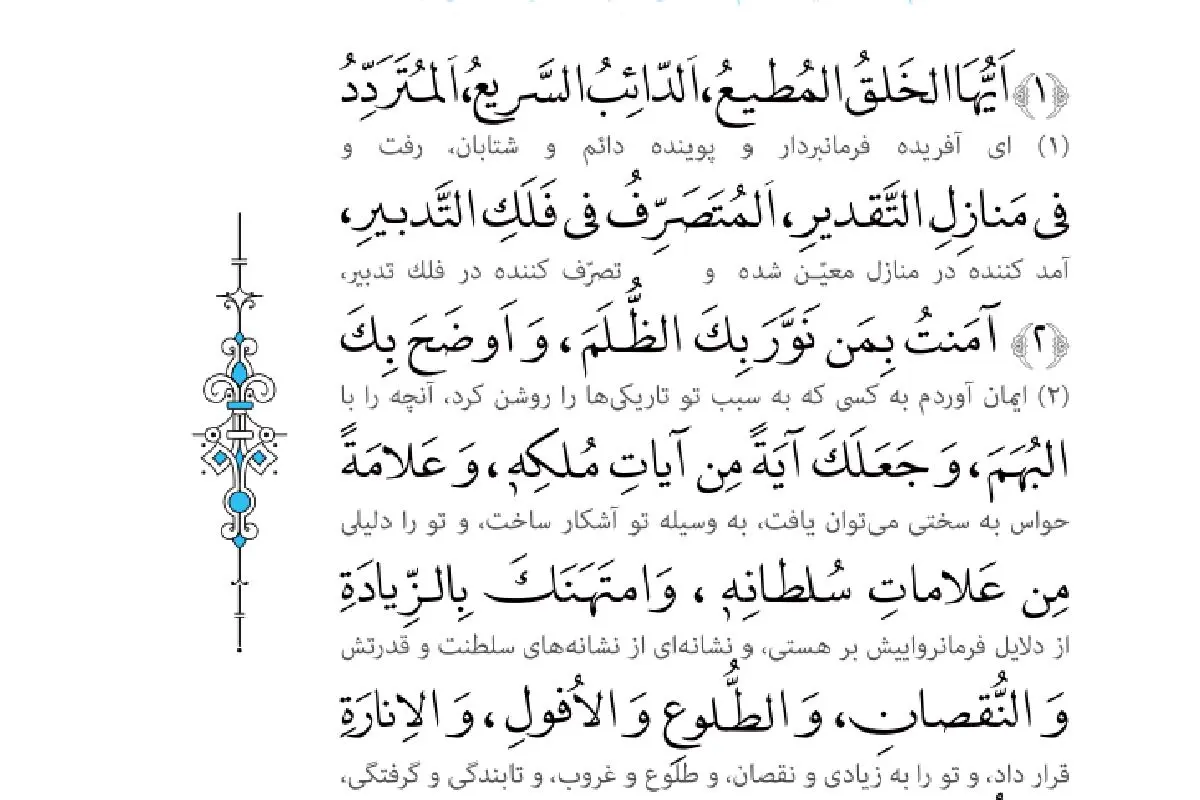 ﴿١﴾ اَيُّهَا الخَلقُ المُطيعُ، اَلدّائِبُ السَّريعُ، اَلمُتَرَدِّدُ
(١) ای آفریده فرمانبردار و پوینده دائم و شتابان، رفت و
فی مَنازِلِ التَّقديرِ، اَلمُتَصَرِّفُ فی فَلَكِ التَّدبيرِ،
آمد کننده در منازل معیّـن شده و تصرّف کننده در فلك تدبیر،
﴿٢﴾ آمَنتُ بِمَن نَوَّرَ بِكَ الظُّلَمَ، وَ اَوضَحَ بِكَ
(٢) ایمان آوردم به کسی که به سبب تو تاریکی‌ها را روشن کرد، آنچه را با
البُهَمَ، وَ جَعَلَكَ آيَةً مِن آياتِ مُلكِهٖ، وَ عَلامَةً
حواس به سختی می‌توان یافت، به وسیله تو آشکار ساخت، و تو را دلیلی
مِن عَلاماتِ سُلطانِهٖ، وَ امتَهَنَكَ بِالزِّيادَةِ
از دلایل فرمانرواییش بر هستی، و نشانه‌ای از نشانه‌های سلطنت و قدرتش
وَ النُّقصانِ، وَ الطُّلوعِ وَ الاُفولِ، وَ الاِنارَةِ
قرار داد، و تو را به زیادی و نقصان، و طلوع و غروب، و تابندگی و گرفتگی،